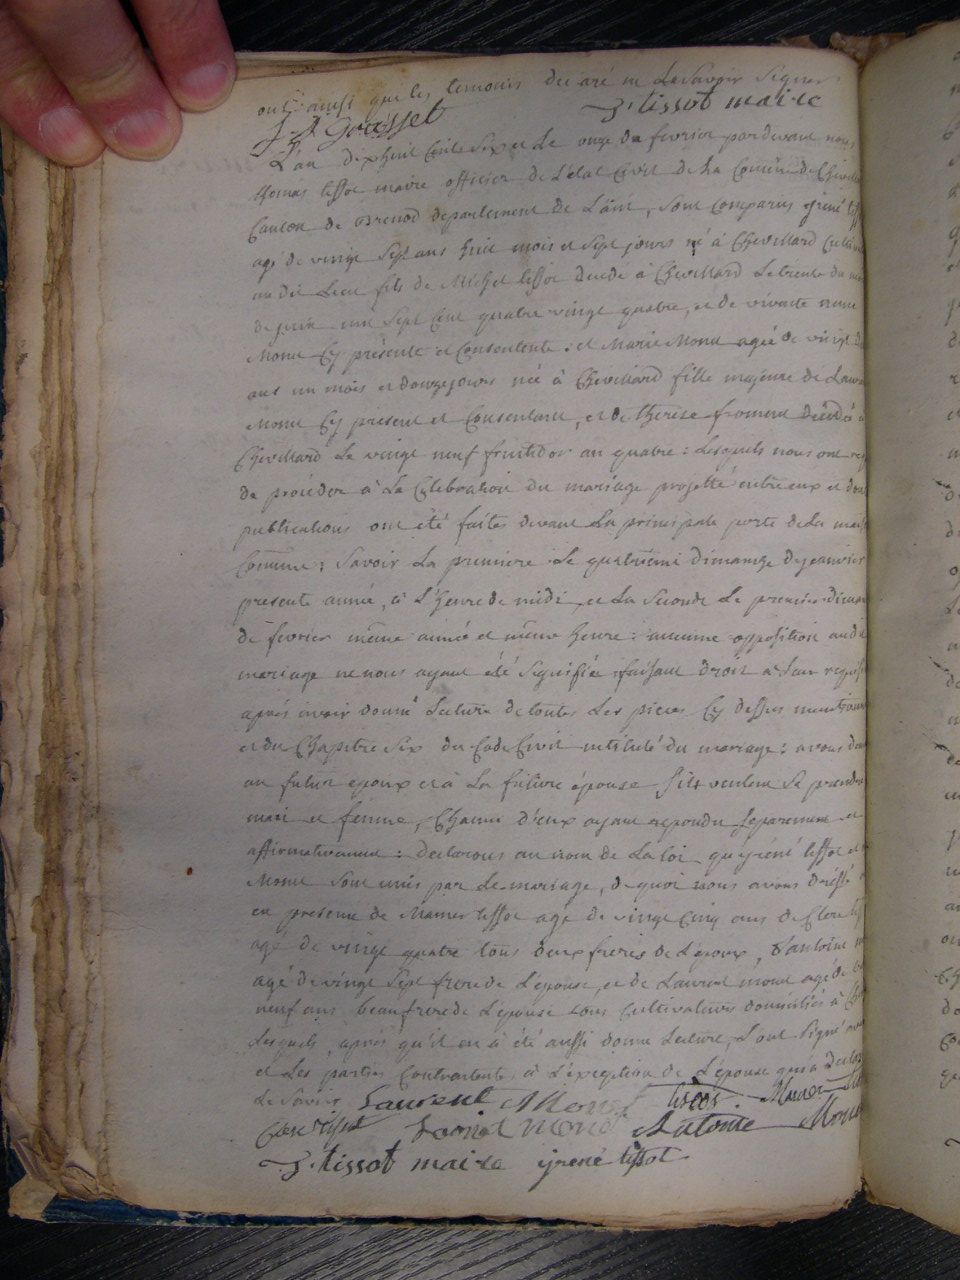 ont ainsi que les temoins declaré ne le savoir signer
J. A Gousset T. tissot maire
L'an dix huit cent six et le onze du fevrier pardevant nous
thomas tissot maire officier de l'état civil de la Comune de Chevillard
Canton de Brenod departement de L'ain, sont comparus yrené tiss
agé de vingt sept ans huit mois et sept jours né à Chevillard Cultiv
au dit Lieu fils de Michel tissot decedé à Chevillard Le trente du mois
de juin mil sept cent quatre vingt quatre, et de vivante
Monet Cy présente et Consentente. et Marie Monet agée de vingt
ans un mois et douze jours née à Chevillard fille majeure de Laurent
Monet Cy present et Consentant, et de therese froment decedée à
Chevillard Le vingt neuf fruitidor an quatre : Lesquels nous ont req
de proceder à La Celebration du mariage projetté entre eux et dont
publications ont été faites devant La principale porte de La mais
Comune ; savoir La premiere Le quatrieme dimanche de janvier
presente année, à L'heure de midi et La seconde Le premier diman
de fevrier même année et même heure : aucune opposition audit
mariage ne nous ayant été signifiée faisant droit à leur requis
après avoir donné Lecture de toutes Les pieces Cy dessus mentionn
et du Chapitre six du Code Civil intitulé du mariage : avons dem
au futur epoux et à La future épouse s'ils veulent se prendre
mari et femme, Chacun d'eux ayant repondu separement et
affirmativement : declarons au nom de La Loi qu'yrené tissot et
Monet sont unis par Le mariage, de quoi nous avons dréssé
en presence de Mamer tissot agé de vingt Cinq ans de Clere tiss
agé de vingt quatre tous deux freres de L'epoux, d'antoine m
agé de vingt sept frere de L'épouse, et de Laurent monet agé de
neuf ans beaufrere de L'epouse tous Cultivateurs domiciliés à Che
Lesquels, après qu'il en à été aussi donné Lecture, L'ont signé avec
et Les parties Contractents à L'exception de L'épouse qui à declar
Le savoir Laurent Monet tissot Mamer tis
Clere tissot Monet Antoine Monet
T. tissot maire yrené tissot